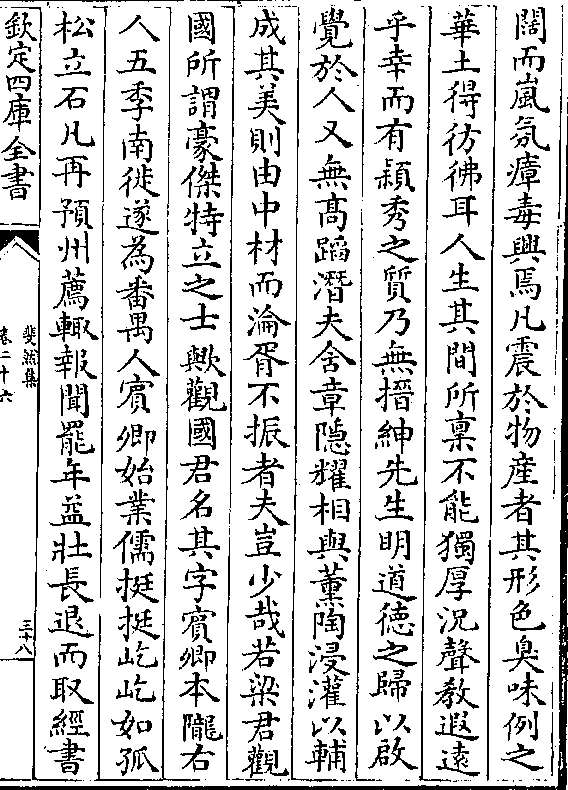 闊而嵐氛瘴毒興焉凡震於物産者其形色臭味例之
華土得彷彿耳人生其間所稟不能獨厚況聲教遐逺
乎幸而有穎秀之質乃無搢紳先生明道徳之歸以啟
覺於人又無髙蹈潛夫含章隱耀相與薰陶浸灌以輔
成其美則由中材而淪胥不振者夫豈少哉若梁君觀
國所謂豪傑特立之士歟觀國君名其字賓卿本隴右
人五季南徙遂為番禺人賓卿始業儒挺挺屹屹如孤
松立石凡再預州薦輙報聞罷年益壯長退而取經書
欽定四庫全書
斐然集
卷二十六
三十八